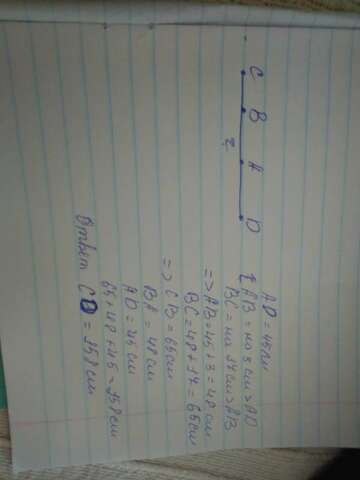 C B A D
?
AD = 45 см
AB = на 3 см > AD
BC = на 17 см > AB
=> AB = 45 + 3 = 48 см
BC = 48 + 17 = 65 см
=> CB = 65 см
BA = 48 см
AD = 45 см
65 + 48 + 45 = 158 см
Ответ CD = 158 см